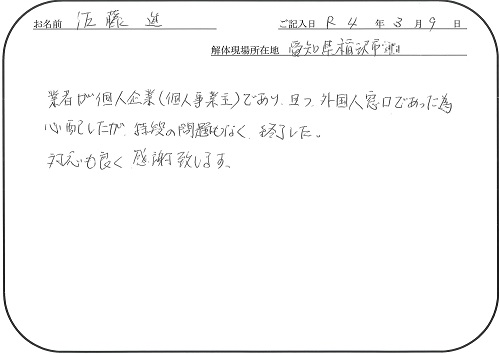 お名前 佐藤 進 ご記入日 R 4 年 3 月 9 日
解体現場所在地 愛知県稲沢市
業者が個人企業(個人事業主)であり、且つ、外国人窓口であった為
心配したが、特段の問題もなく、終了した。
対応も良く 感謝致します。